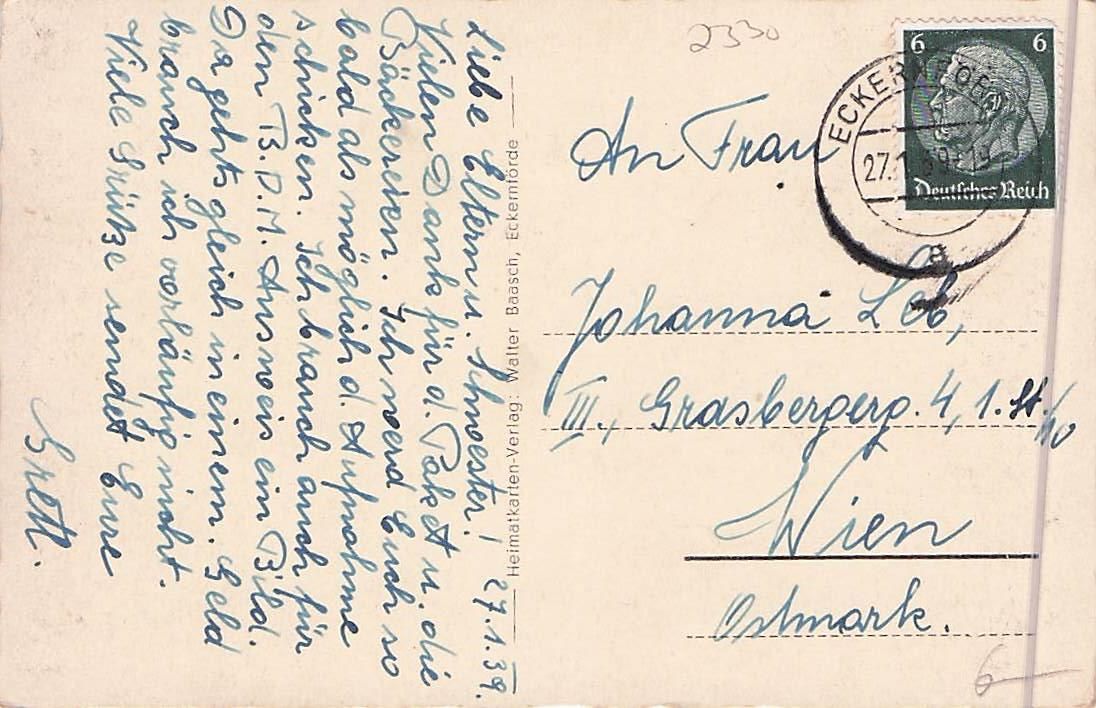 Liebe Eltern u. Schwester! 27.1.39.
Vielen Dank für d. Paket u. die
Bäckereien. Ich werd Euch so
bald als möglich d. Aufnahme
schicken. Ich brauch auch für
den B.D.M. Ausweis ein Bild.
Da gehts gleich in einem. Geld
brauch ich vorläufig nicht.
Viele Grüße sendet Eure
Gretl.
Heimatkarten-Verlag: Walter Baasch, Eckernförde
2330
6 6
Deutsches Reich
27.1.39
a
An Frau
Johanna Leb,
III., Grasbergerg. 4, 1. St./10
Wien
Ostmark.
6